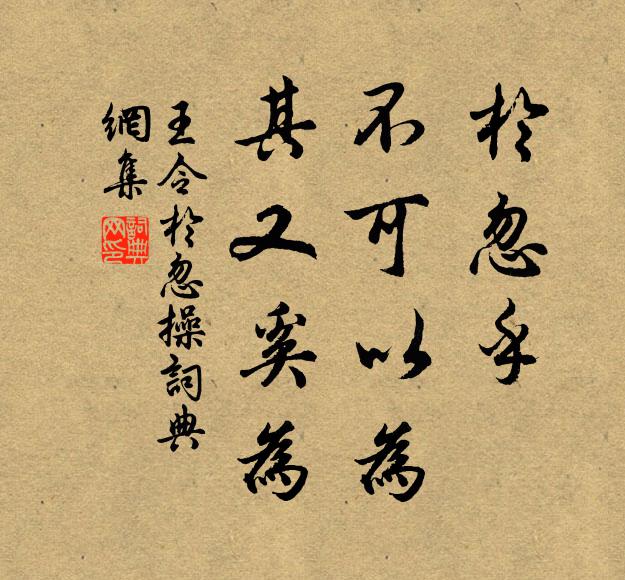 於忽乎
不可以為
其又奚為
王令於忽操詞典
網集
詞典網印